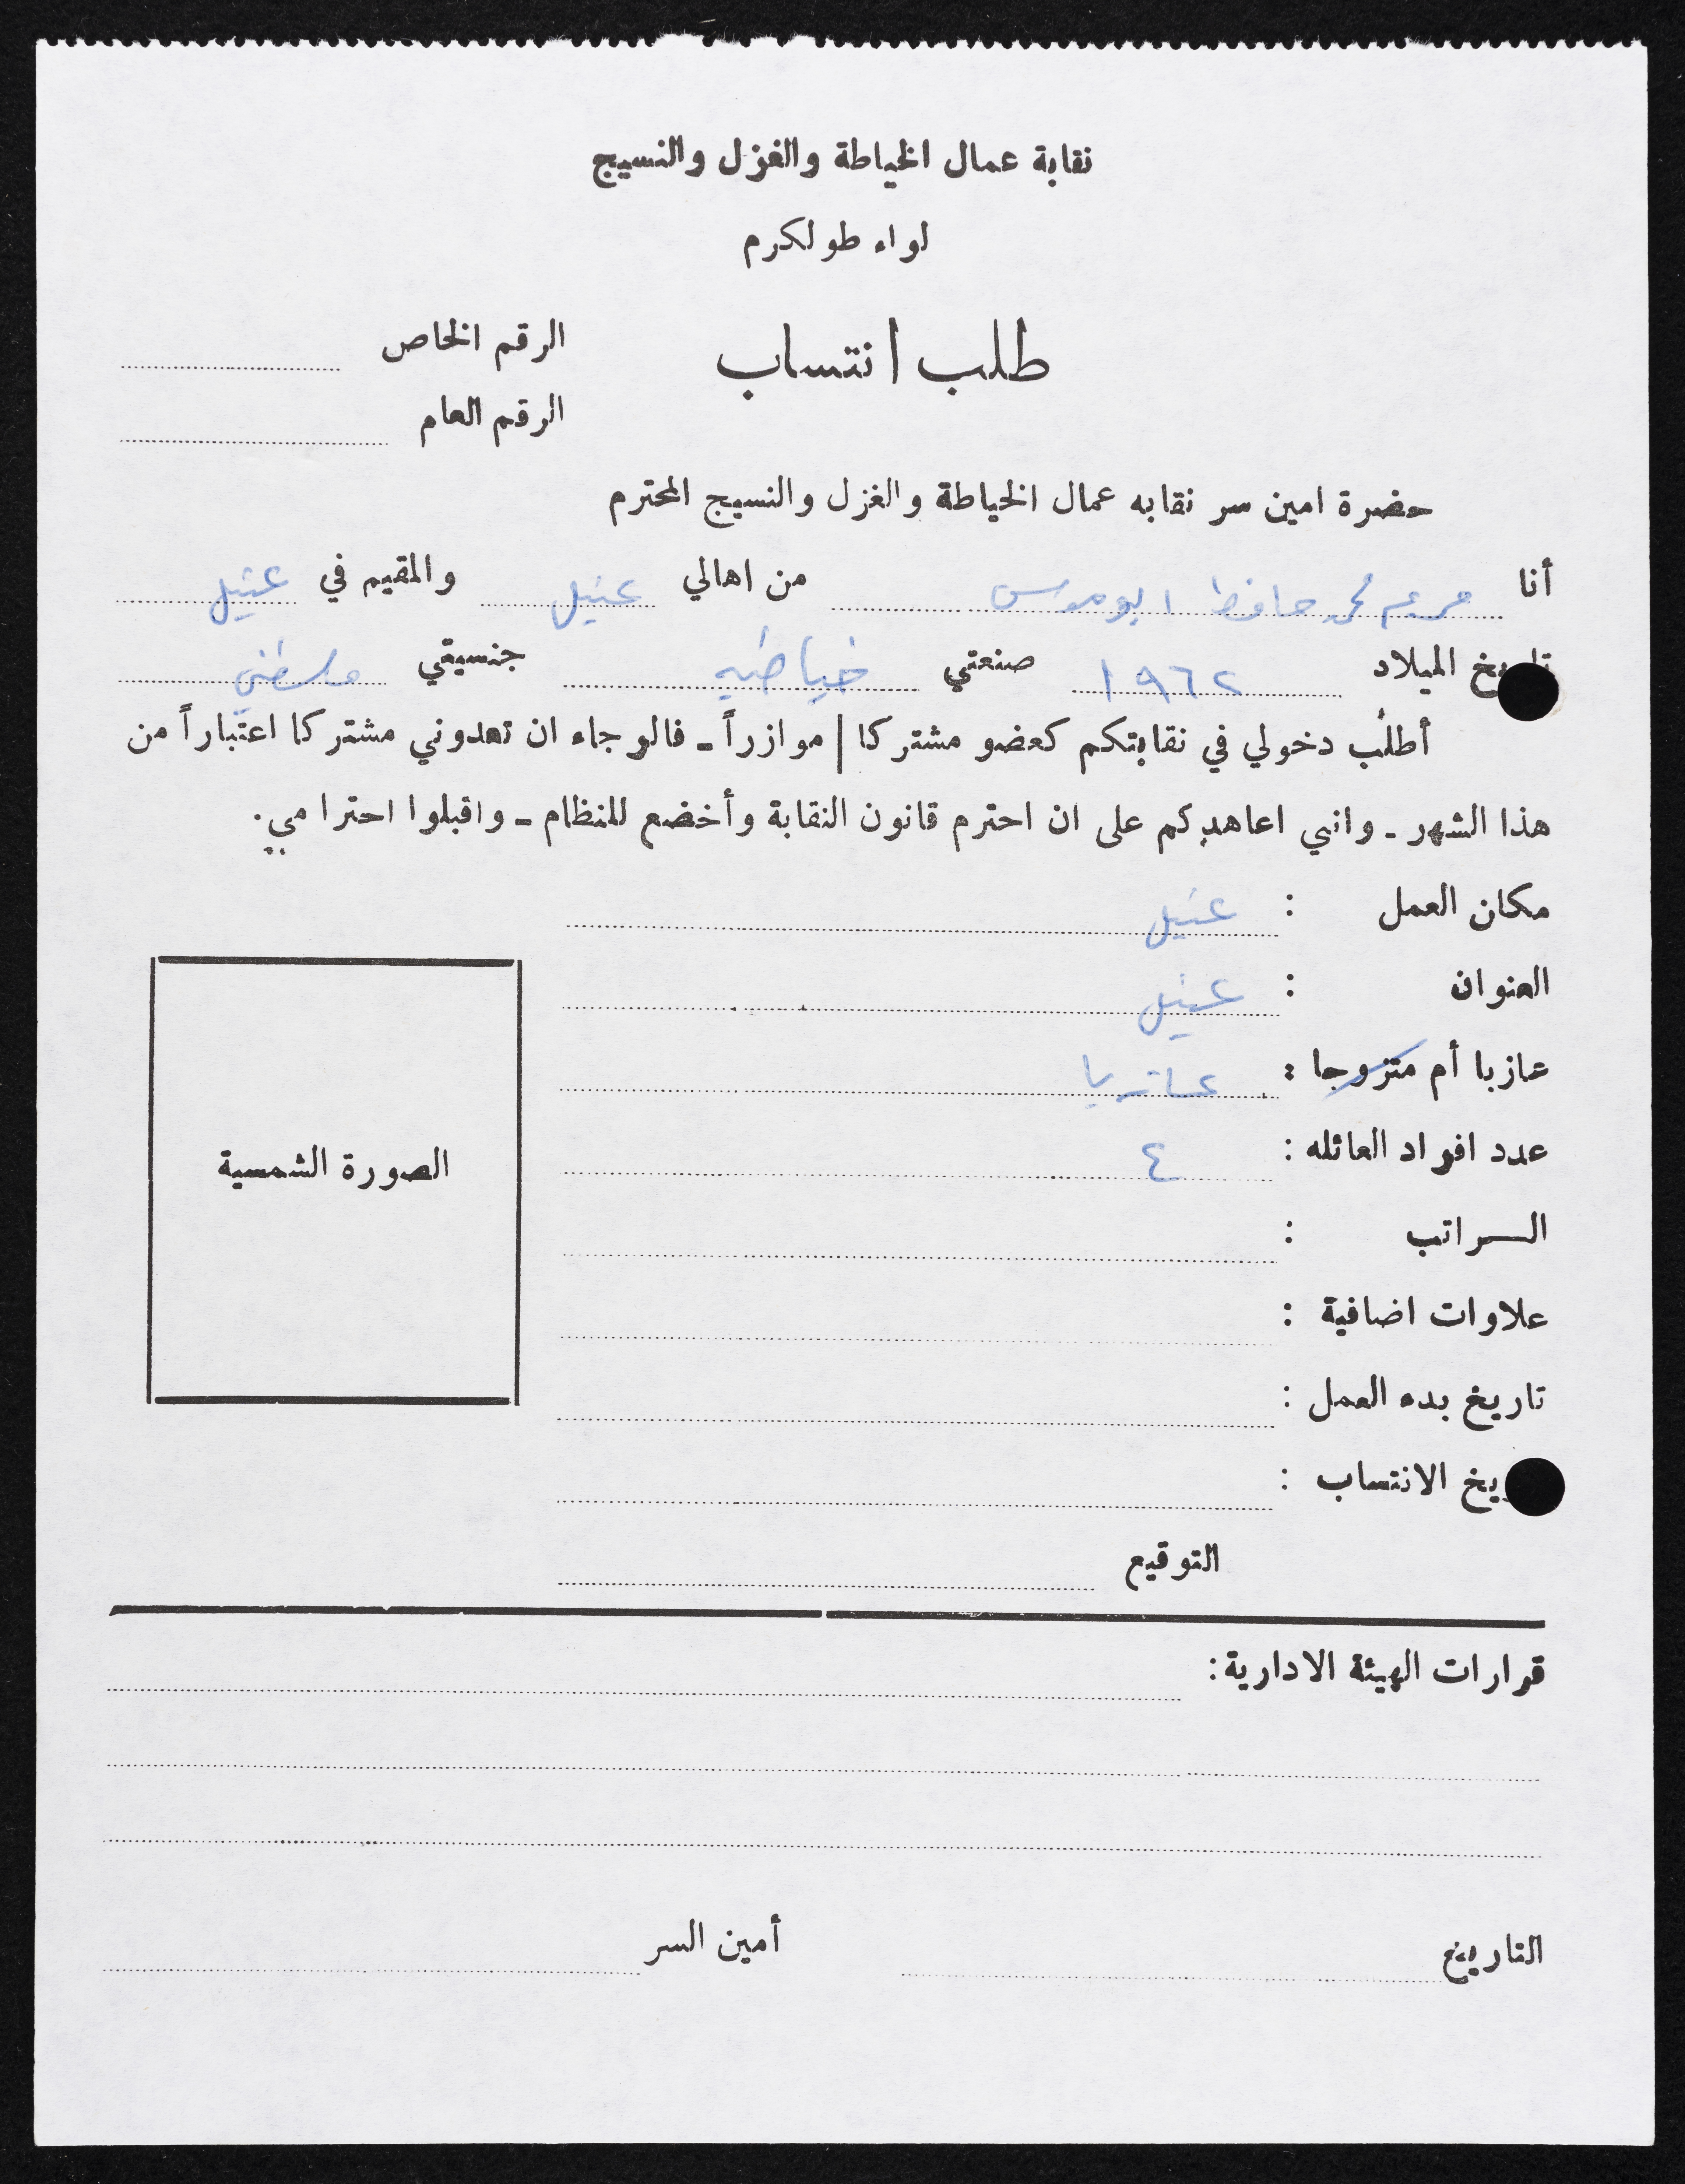 نقابة عمال الخياطة والغزل والنسيج
لواء طولكرم
طلب انتساب
الرقم الخاص
الرقم العام
حضرة امين سر نقابه عمال الخياطة والغزل والنسيج المحترم
أنا مريم محمد حافظ ابو موسى من اهالي عتيل والمقيم في عتيل
تاريخ الميلاد ١٩٦٢ صنعتي خياطه جنسيتي فلسطيني
أطلب دخولي في نقابتكم كعضو مشتركا / موازراً ـ فالرجاء ان تعدوني مشتركا اعتباراً من
هذا الشهر ـ واني اعاهدكم على ان احترم قانون النقابة وأخضع للنظام ـ واقبلوا احترامي.
مكان العمل : عتيل
العنوان : عتيل
عازبا أم متزوجا : عازبا
عدد افراد العائله : ٤
الصورة الشمسية
الـــراتب :
علاوات اضافية :
تاريخ بدء العمل :
يخ الانتساب :
التوقيع
قرارات الهيئة الادارية :
التاريخ أمين السر